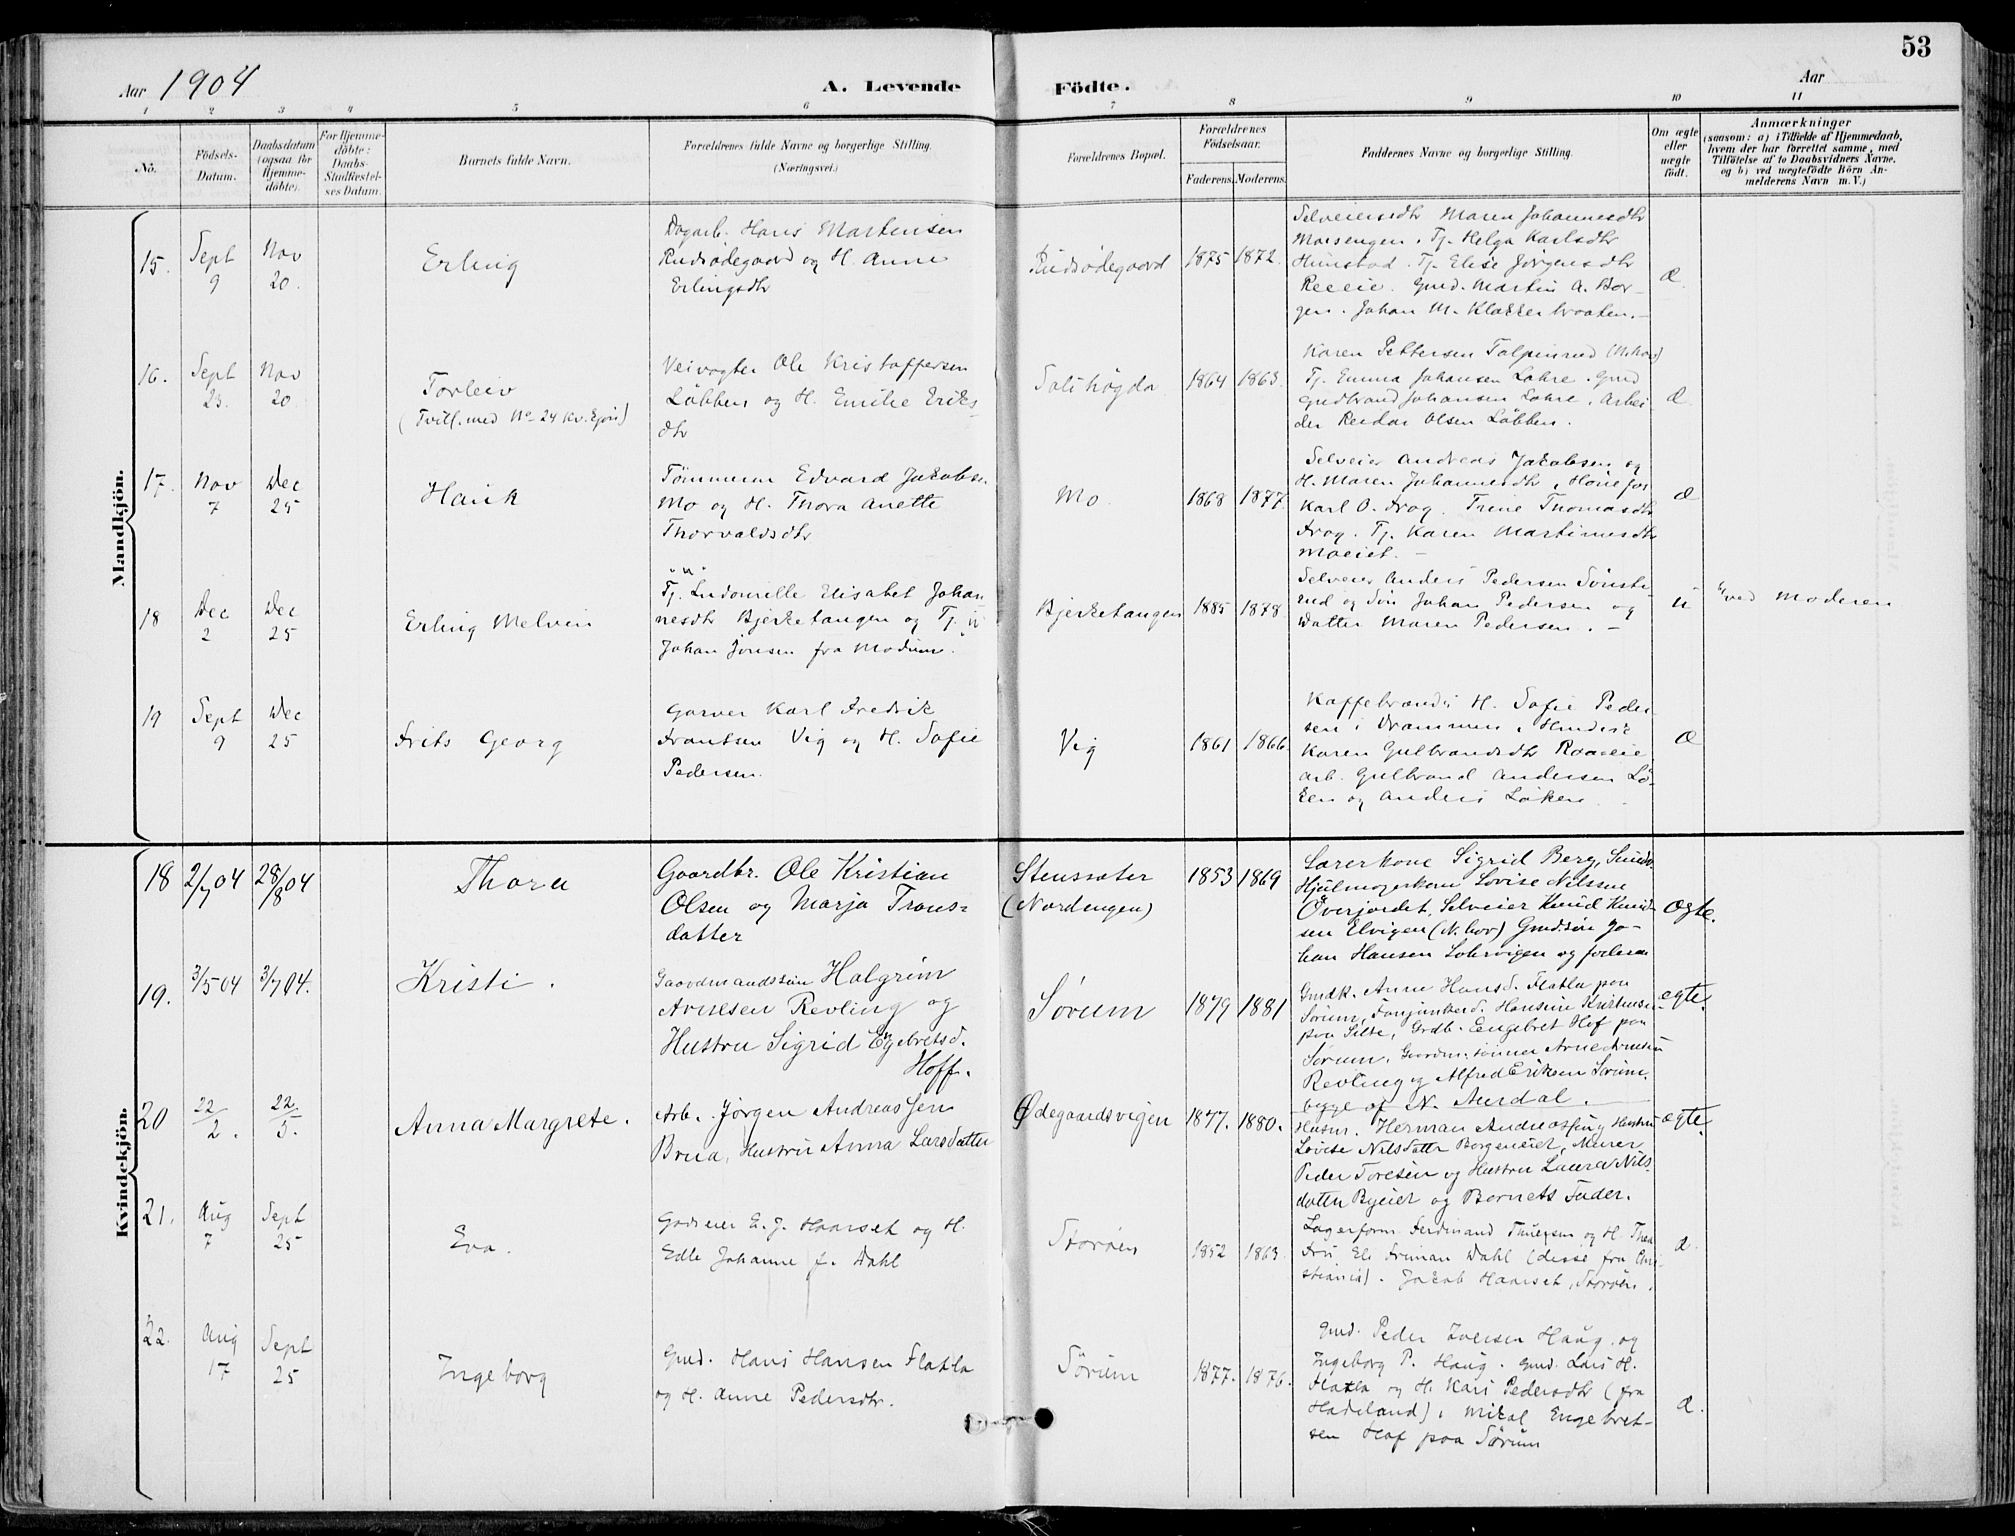 53
Aar 1904
A. Levende
Födte.
Aar
1 2 3 4 5 6 7 8 9 10 11
No.
Födsels-
Datum.
Daabsdatum
(ogsaa for
Hjemme-
döbte).
For Hjemme-
döbte:
Daabs-
Stadfæstel-
ses Datum.
Barnets fulde Navn.
Forældrenes fulde Navne og borgerlige Stilling.
(Næringsvei.)
Forældrenes Bopæl.
Forældrenes
Födselsaar.
Faderens. Moderens.
Faddernes Navne og borgerlige Stilling.
Om ægte
eller
uægte
födt.
Anmærkninger
(saasom: a) i Tilfælde af Hjemmedaab,
hvem der har forrettet samme, med
Tilföielse af to Daabsvidners Navne,
og b) ved uægtefödte Börn An-
melderens Navn m. V.)
Mandkjön.
15.
Sept
9
Nov
20.
Erling
Dagarb. Hans Martinsen
Rudsødegaard og H. Anne
Erlingsdtr
Rudsødegaard
1875 1872.
Selveiersdtr Maren Johannesdtr
Moesengen. Tj. Helga Karlsdtr
Hunstad. Tj. Elise Jørgensdtr
Gmd. Martin A. Bor-
gen. Johan M. Klækkenbraaten.
Æ.
16.
Sept
23.
Nov
20.
Torleiv
(Tvill. med No 24 Kv. Kjøn)
Veivogter Ole Kristoffersen
Løbben og H. Emilie Eriks-
dtr
Solihøgda
1864 1863.
Karen Pettersen Tolpinrud (N.hov)
Tj. Emma Johansen Lohre. Gmd
Gudbrand Johansen Lohre. Arbei
der Reidar Olsen Løbben.
Æ.
17.
Nov
7
Dec
25
Hauk
Tømmerm Edvard Jakobs.
Mo og H. Thora Anette
Thorvaldsdtr
Mo.
1868 1877.
Selveier Andreas Jakobsen og
H. Maren Johannesdtr, Hønefos
Karl O. Frog. Trine Thomasdtr
Frog. Tj. Karen Martinusdtr
Moeiet. –
Æ
18
Dec
2
Dec
25
Erling Melvin
"u"
Tj. Ludovielle Elisabet Johan
nesdtr Bjerketangen og Tj. "u"
Johan Jonsen fra Modum.
Bjerketangen
1885 1878.
Selveier Anders Pedersen Sønste
rud og Søn Johan Pedersen og
Datter Maren Pedersen. –
u
ved Moderen
19
Sept
9
Dec
25
Frits Georg
Garver Karl Fredrik
Frantsen Vig og H. Sofie
Pedersen.
Vig
1861 1866.
Kaffebrænders H. Sofie Peder
sen i Drammen,
Karen Gulbrandsdtr
arb. Gulbrand Andersen Lø-
ken og Anders Løken.
Æ
Kvindekjön.
18
2/7 04
28/8 04
Thora
Gaardbr. Ole Kristian
Olsen og Marja Frans-
datter
Stenssæter
(Nordengen)
1853 1869
Lærerkone Sigrid Berg,
Hjulmagerkone Lovise Nilssen
Øverjordet, Selveier Knud Knud
sen Elvigen (N.hov) Gmdsøn Jo-
han Hansen Lohrvigen og faderen
Ægte.
19.
3/5 04
3/7 04.
Kristi.
Gaardmandssøn Halgrim
Arnesen Revling og
Hustru Sigrid Engebretsd.
Hoff.
Sørum
1879 1881
Gmdk. Anne Hansd. Flatla paa
Sørum, Hansine Kristensen
paa Grdb. Engebret Hof paa
Sørum. Gaardm. sønner Arne Arnesen
Revling og Alfred Eriksen Sørum.
begge af N. Aurdal.
egte.
20
22/2.
22/5.
Anna Margrete.
Arb. Jørgen Andreassen
Brua, Hustru Anna Larsdatter
Ødegaardsvigen
1877. 1880.
Husm. Herman Andreassen og Hustru
Lovise Nilsdattr Borgeneiet, Murer
Peder Toresen og Hustru Laura Nils-
datter Byeiet og Barnets Fader.
egte.
21.
Aug
7
Sept
25
Eva.
Godseier E. J. Haarset og H.
Edle Johanne f. Dahl
Storøen
1852 1863.
Lagerform. Ferdinand Thuesen og H. Thea
Fru Els Dahl (disse fra Chri-
stiania). Jakob Haarset, Storøen.
Æ.
22.
Aug
17
Sept
25
Ingeborg
Gmd. Hans Hansen Flatla
og H. Anne Pedersdtr.
Sørum
1877. 1876.
Gmd. Peder Iversen Haug og
Ingeborg P. Haug. Gmd. Lars H.
Flatla og H. Kari Pedersdtr (fra
Hadeland), Mikal Engebret-
sen Hof paa Sørum
Æ.